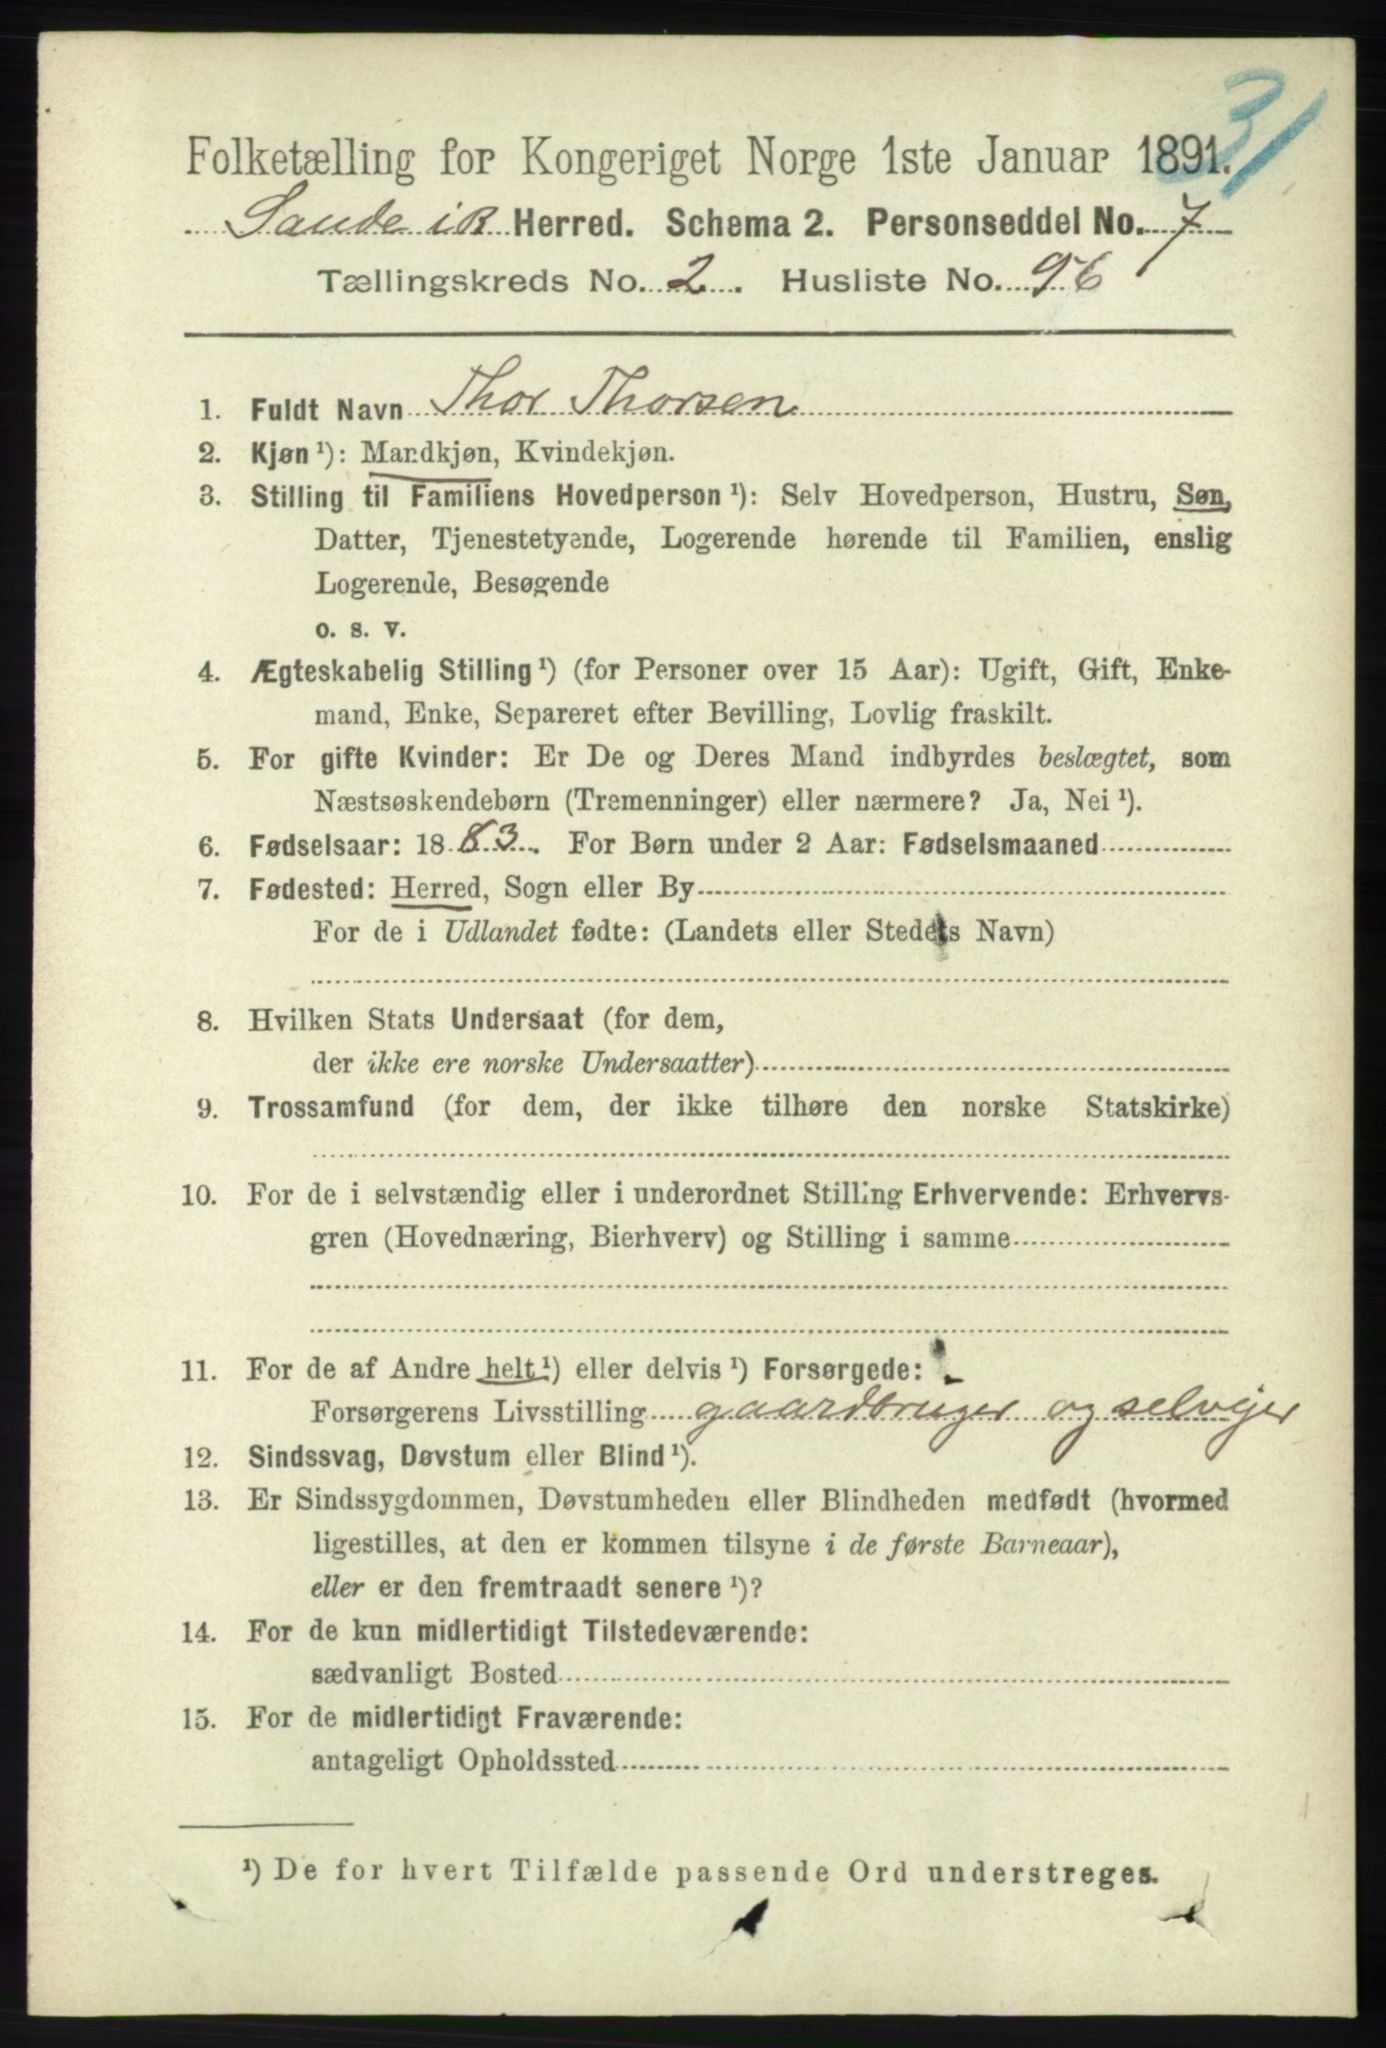 31
Folketælling for Kongeriget Norge 1ste Januar 1891.
Sande i R Herred. Schema 2. Personseddel No. 7
Tællingskreds No. 2. Husliste No. 96
1. Fuldt Navn Thor Thorsen
2. Kjøn ¹): Mandkjøn, Kvindekjøn.
3. Stilling til Familiens Hovedperson ¹): Selv Hovedperson, Hustru, Søn,
Datter, Tjenestetyende, Logerende hørende til Familien, enslig
Logerende, Besøgende
o. s. v.
4. Ægteskabelig Stilling ¹) (for Personer over 15 Aar): Ugift, Gift, Enke-
mand, Enke, Separeret efter Bevilling, Lovlig fraskilt.
5. For gifte Kvinder: Er De og Deres Mand indbyrdes beslægtet, som
Næstsøskendebørn (Tremenninger) eller nærmere? Ja, Nei ¹).
6. Fødselsaar: 1883. For Børn under 2 Aar: Fødselsmaaned
7. Fødested: Herred, Sogn eller By
For de i Udlandet fødte: (Landets eller Stedets Navn)
8. Hvilken Stats Undersaat (for dem,
der ikke ere norske Undersaatter)
9. Trossamfund (for dem, der ikke tilhøre den norske Statskirke)
10. For de i selvstændig eller i underordnet Stilling Erhvervende: Erhvervs-
gren (Hovednæring, Bierhverv) og Stilling i samme
11. For de af Andre helt ¹) eller delvis ¹) Forsørgede:
Forsørgerens Livsstilling gaardbruger og selvejer
12. Sindssvag, Døvstum eller Blind ¹).
13. Er Sindssygdommen, Døvstumheden eller Blindheden medfødt (hvormed
ligestilles, at den er kommen tilsyne i de første Barneaar),
eller er den fremtraadt senere ¹)?
14. For de kun midlertidigt Tilstedeværende:
sædvanligt Bosted
15. For de midlertidigt Fraværende:
antageligt Opholdssted
¹) De for hvert Tilfælde passende Ord understreges.